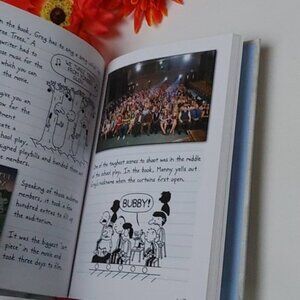 n the book, Greg has to sing a
ree Trees." A
writer had to
ose music for the
ich you can
the movie.
give you an
ow for the
tment
ate a
hool play.
igned playbills and
members.
Speaking of those audience
members, it took a few
hundred extras to fill up
the auditorium.
It was the biggest "set
piece" in the movie and
took three days to film.
One of the toughest scenes to shoot was in the middle
of the school play. In the book, Manny yells out
Greg's nickname when the curtains first open.
BUBBY!